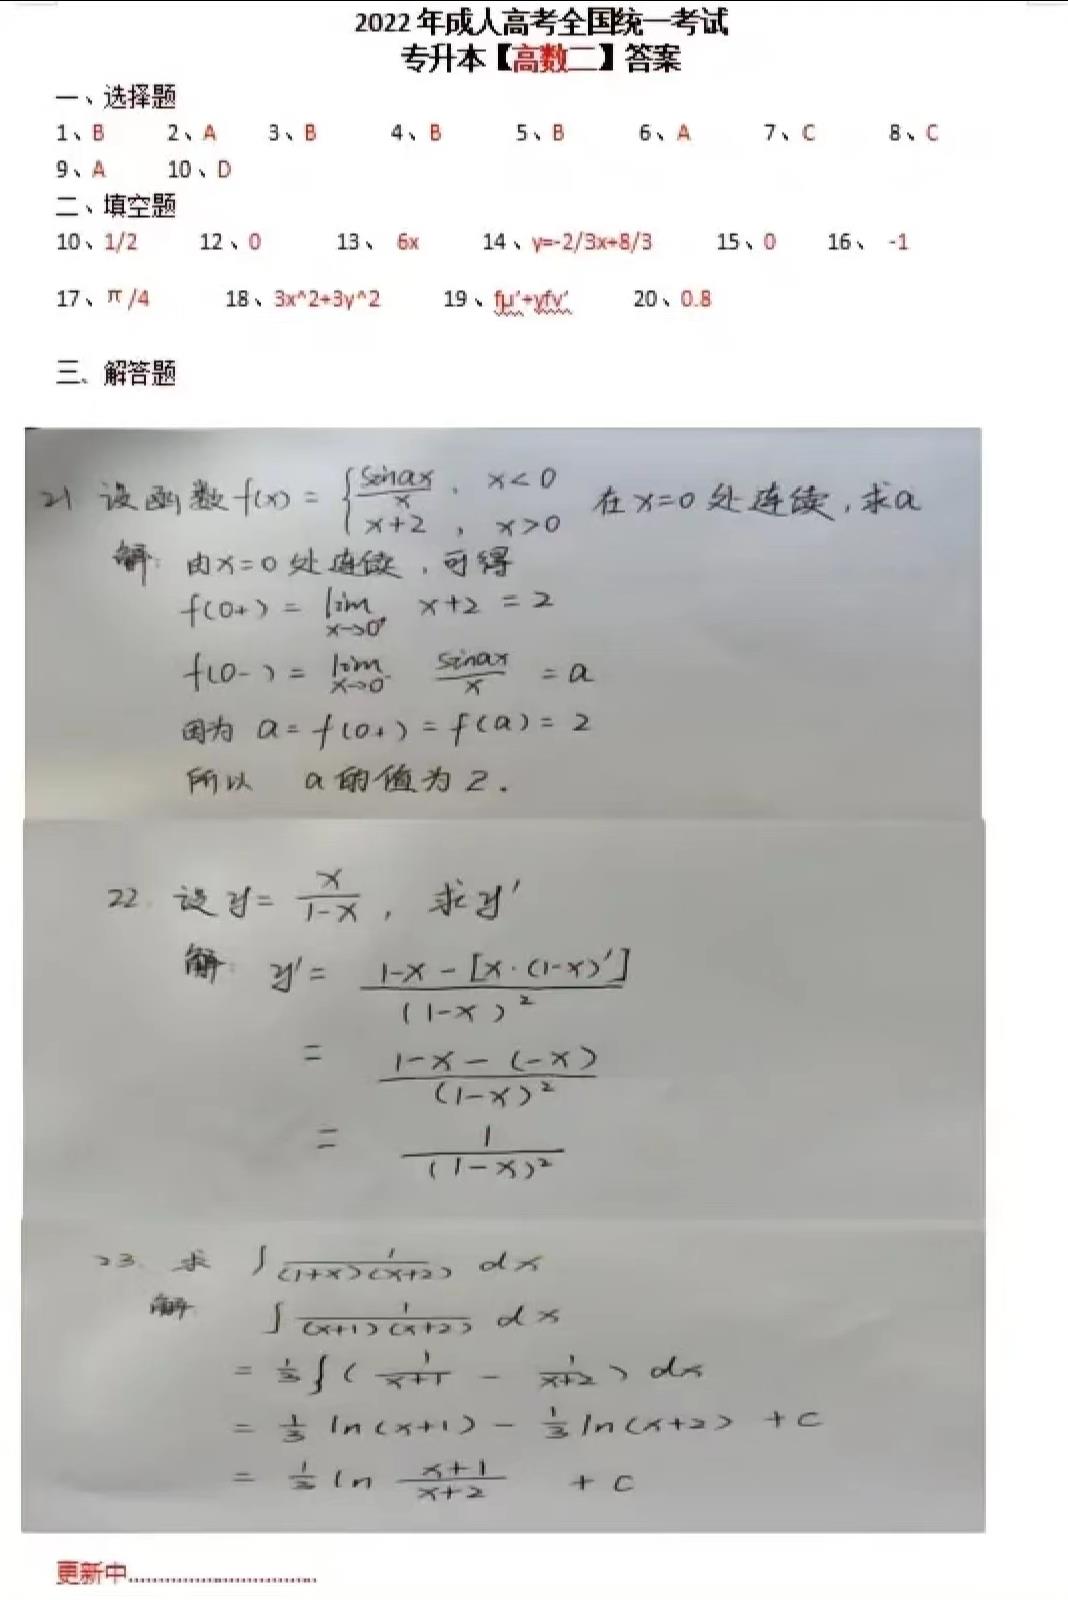 2022年成人高考全国统一考试
专升本【高数二】答案
一、选择题
1、B 2、A 3、B 4、B 5、B 6、A 7、C 8、C
9、A 10、D
二、填空题
10、1/2 12、0 13、 6x 14、y=-2/3x+8/3 15、0 16、 -1
17、π/4 18、3x^2+3y^2 19、fμ'+yfv' 20、0.8
三、解答题
21 设函数f(x) = { sinax/x , x<0 ; x+2 , x>0 在x=0处连续,求a
解: 由x=0处连续,可得
f(0+) = lim x→0+ x+2 = 2
f(0-) = lim x→0- sinax/x = a
因为 a = f(0+) = f(a) = 2
所以 a的值为2.
22. 设y = x/(1-x) , 求y'
解: y' = (1-x-[x·(1-x)'])/(1-x)²
= (1-x-(-x))/(1-x)²
= 1/(1-x)²
23. 求 ∫ 1/((1+x)(x+2)) dx
解 ∫ 1/((x+1)(x+2)) dx
= 1/3 ∫ ( 1/(x+1) - 1/(x+2) ) dx
= 1/3 ln(x+1) - 1/3 ln(x+2) + C
= 1/3 ln (x+1)/(x+2) + C
更新中................................